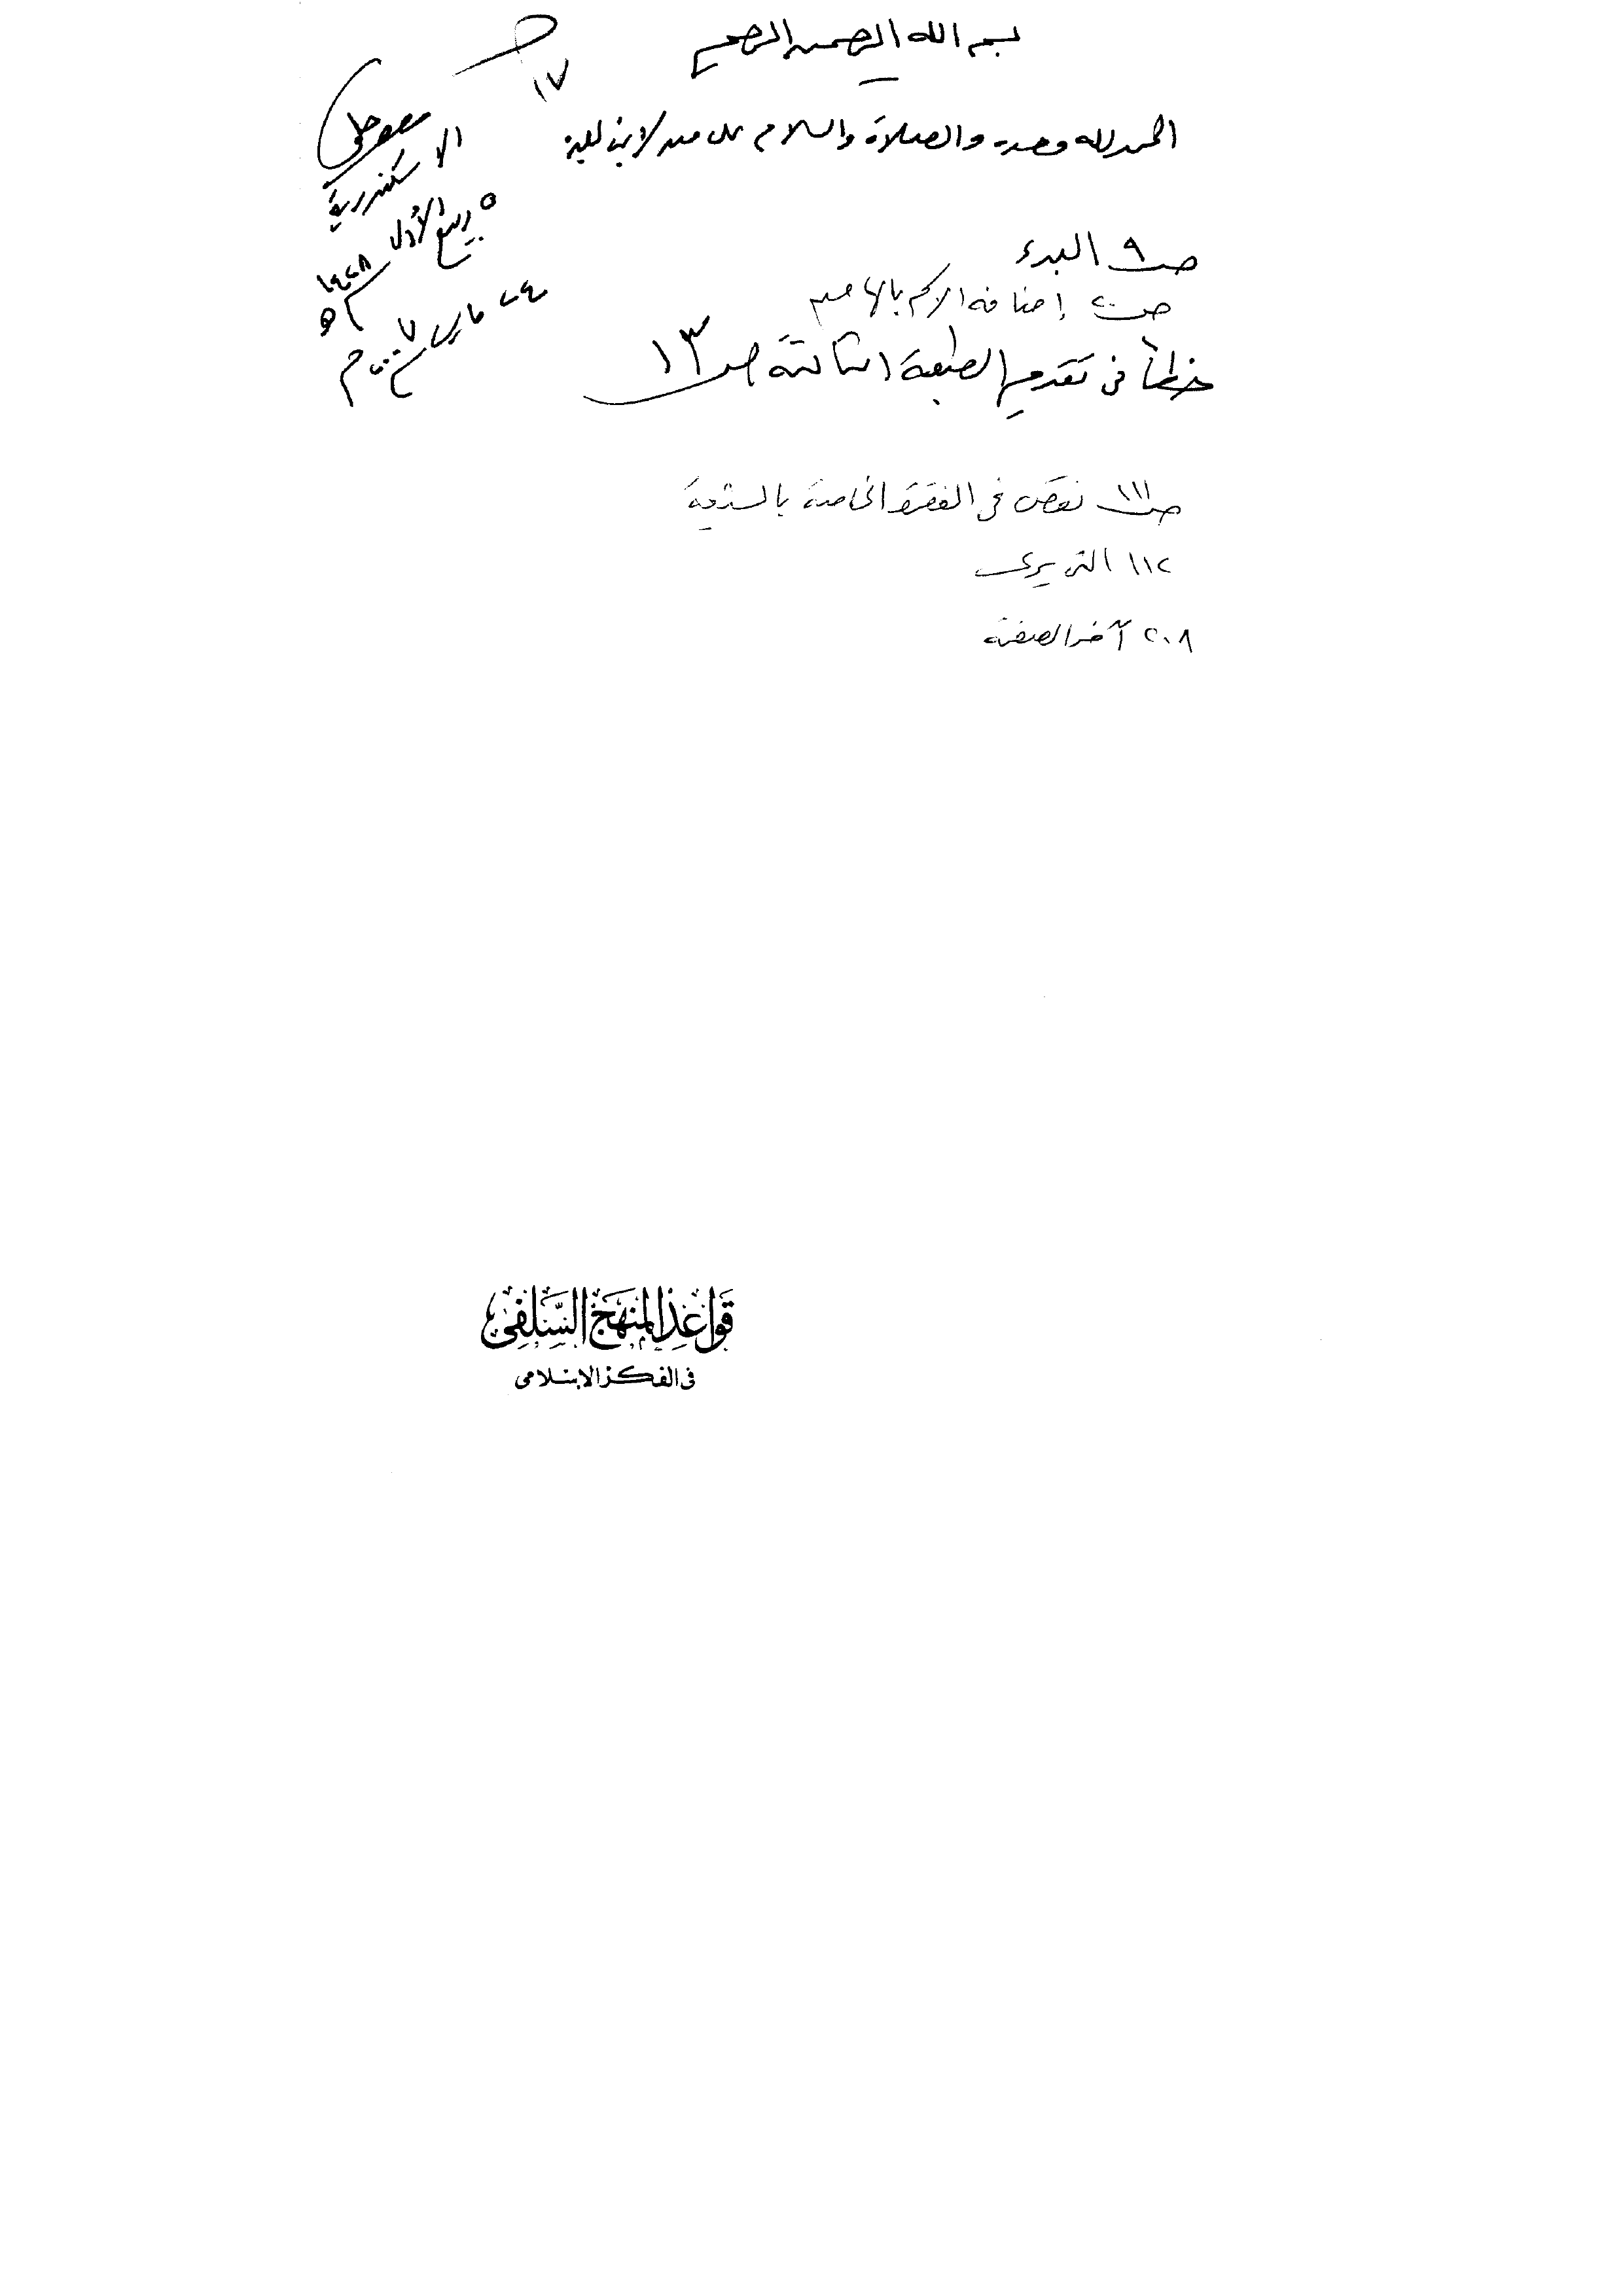 بسم الله الرحمن الرحيم
الحمد لله وحده والصلاة والسلام على من لا نبي بعده
١٧
مصطفى حلمي
الإسكندرية
٥ ربيع الأول ١٤٢٨ هـ
٢٤ مارس ٢٠٠٧ م
ص ٩ البدء
ص ٢٠ إضافة الاسم بالهامش
خطأ في تقديم الطبعة الثالثة ص ١٣
ص ١١١ نقص في الفقرة الخاصة بالشيعة
١١٢
٢٠٨ آخر الصفحة
قَواعِدُ المنهَج السَّلَفِي
في الفكر الإسلامي